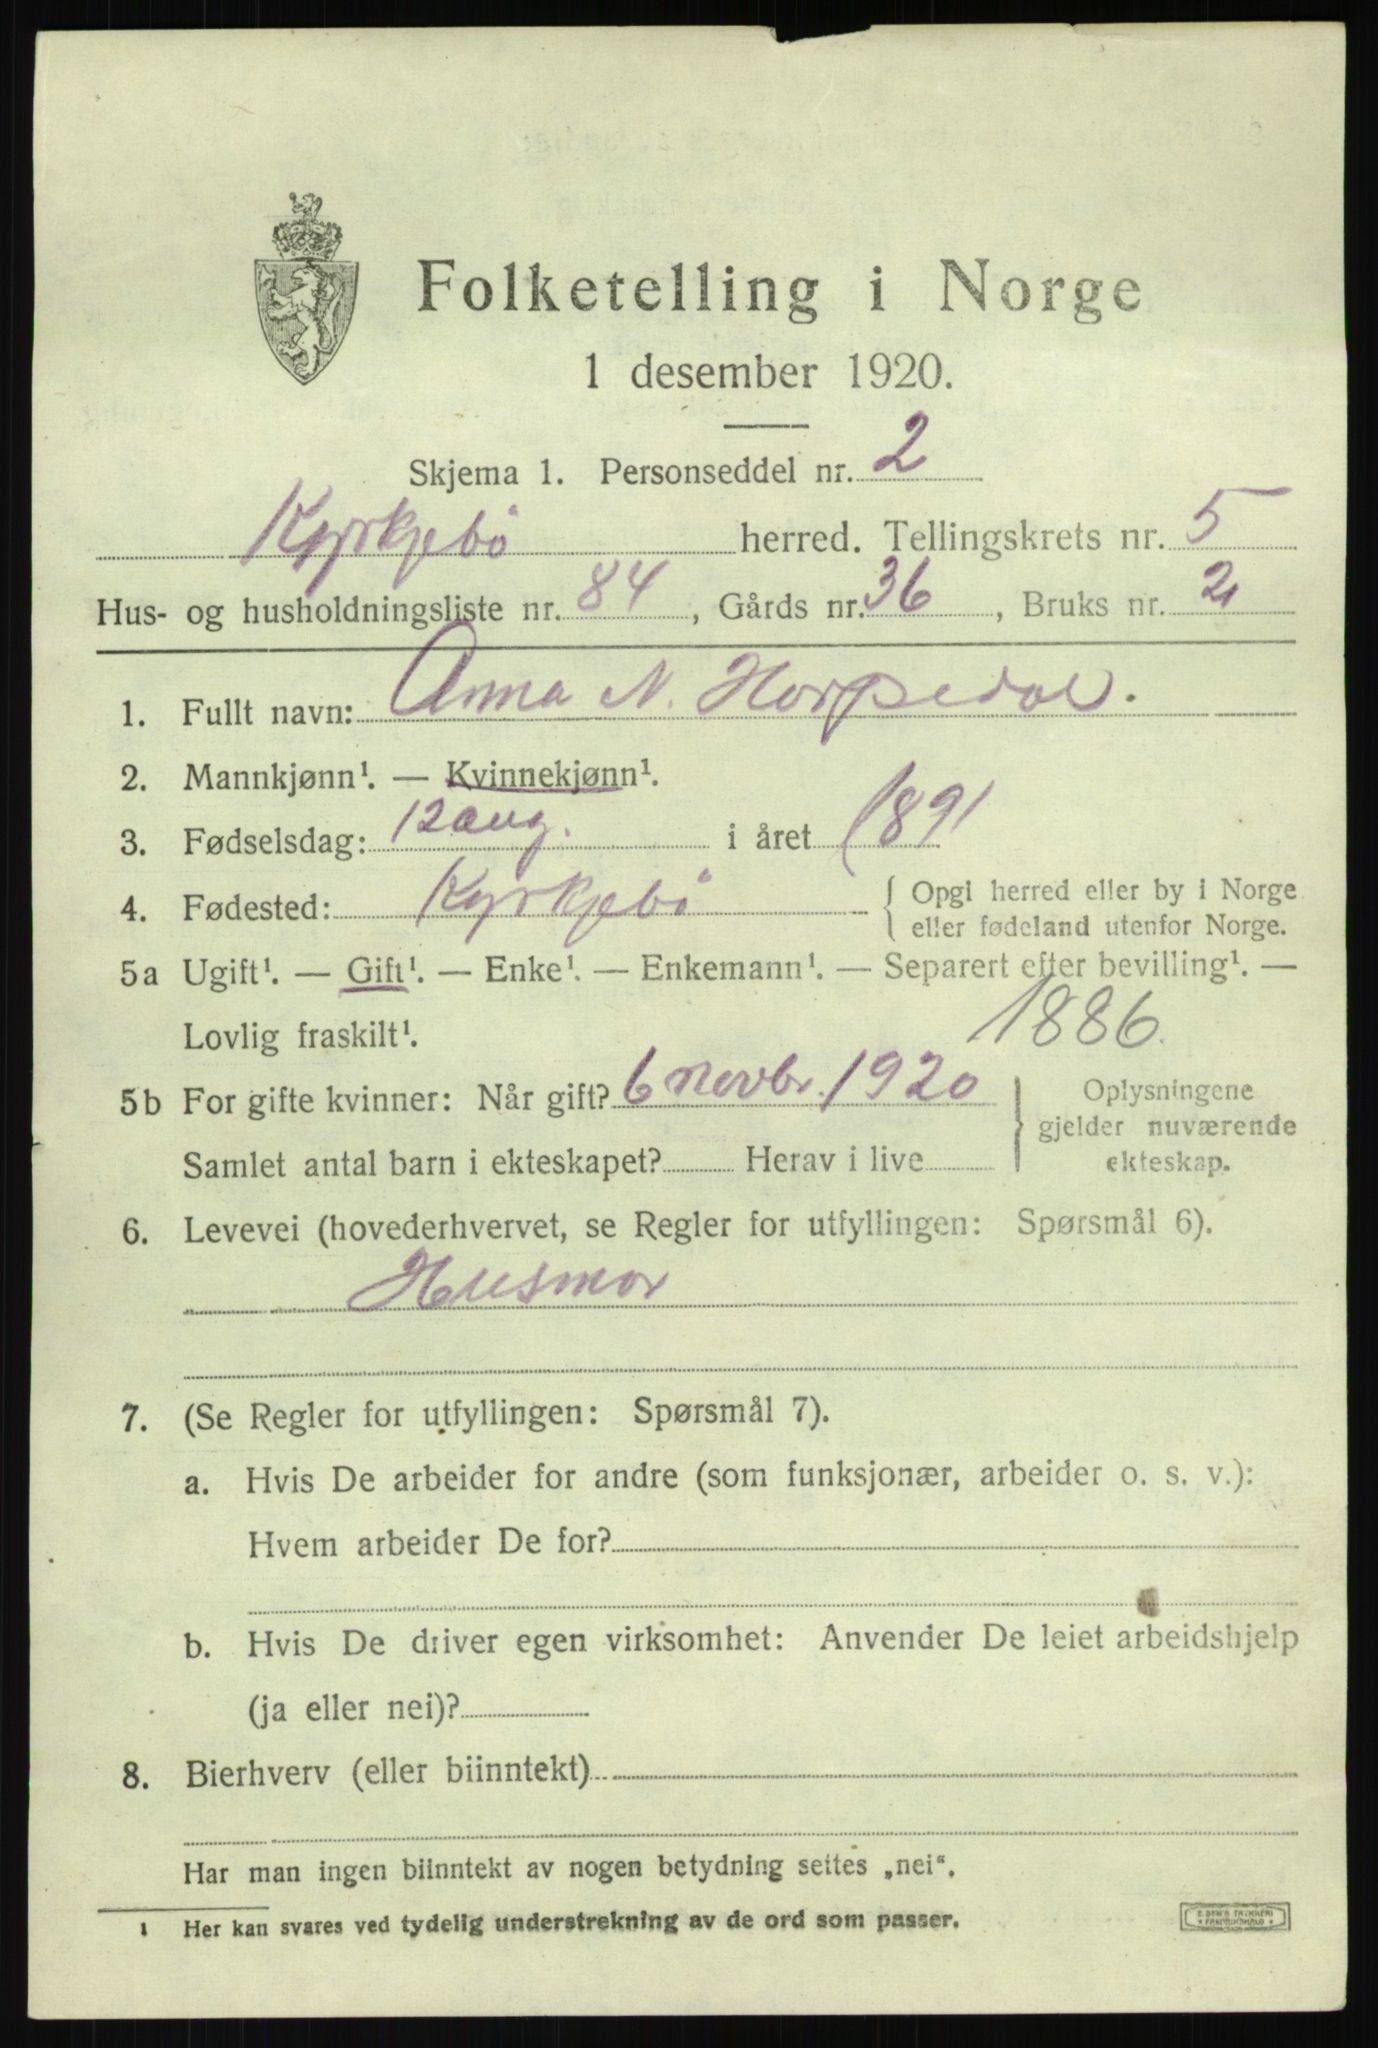 Folketelling i Norge
1 desember 1920.
Skjema 1. Personseddel nr. 2
Kyrkjebö herred. Tellingskrets nr. 5
Hus- og husholdningsliste nr. 84, Gårds nr. 36, Bruks nr. 2
1. Fullt navn: Anna N. Horpedal.
2. Mannkjønn¹. — Kvinnekjønn¹.
3. Fødselsdag: 12 aug. i året 1891
4. Fødested: Kyrkjebö { Opgi herred eller by i Norge
eller fødeland utenfor Norge.
5a Ugift¹. — Gift¹. — Enke¹. — Enkemann¹. — Separert efter bevilling¹. —
Lovlig fraskilt¹. 1886.
5b For gifte kvinner: Når gift? 6 novbr. 1920 } Oplysningene
gjelder nuværende
Samlet antal barn i ekteskapet? Herav i live ekteskap.
6. Levevei (hovederhvervet, se Regler for utfyllingen: Spørsmål 6).
Husmor
7. (Se Regler for utfyllingen: Spørsmål 7).
a. Hvis De arbeider for andre (som funksjonær, arbeider o. s. v.):
Hvem arbeider De for?
b. Hvis De driver egen virksomhet: Anvender De leiet arbeidshjelp
(ja eller nei)?
8. Bierhverv (eller biinntekt)
Har man ingen biinntekt av nogen betydning settes „nei“.
1 Her kan svares ved tydelig understrekning av de ord som passer.